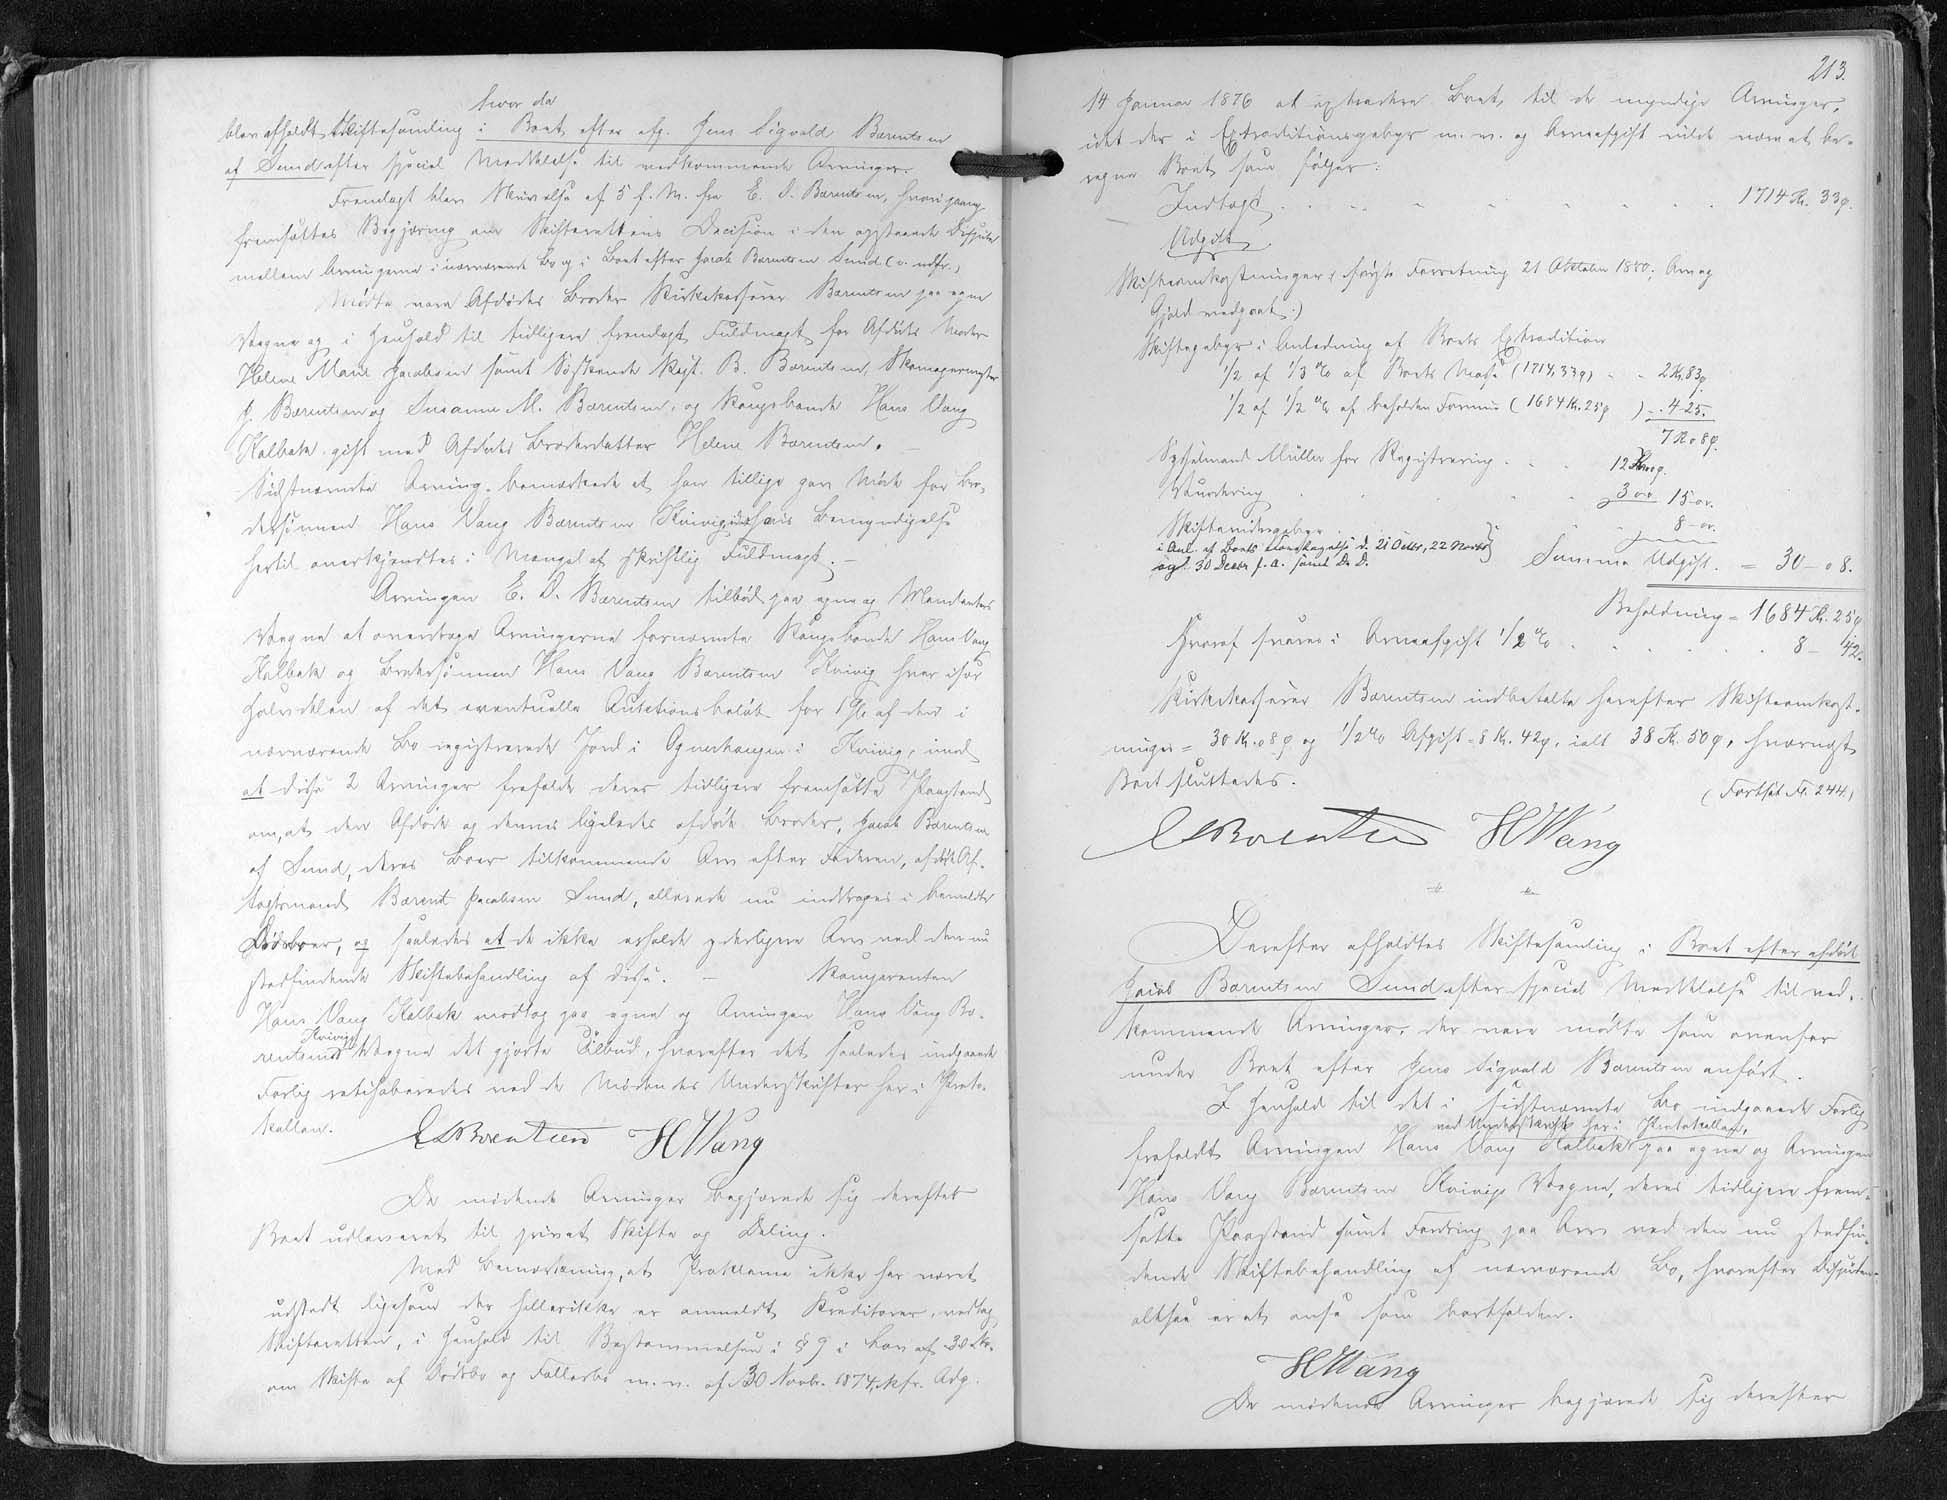 hvor da
blev afholdt Skiftesamling i Boet efter afg. Jens Sigvald Bærentsen
af Sund efter special Meddelelse til vedkommende Arvinger.
Fremlagt blev Skrivelse af 5 f. M. fra E. S. Bærentsen, hvori paany
fremsættes Begjæring om Skifterettens Decision i den opstaaede Dispute
mellem Arvingerne i nærværende Bo og i Boet efter Jacob Bærentsen Sund (v. ndfr.)
Mødte vare Afdødes Broder Kirkekasserer Bærentsen paa egne
Vegne og i Henhold til tidligere fremlagt Fuldmagt for Afdødes Moder
Helene Marie Jacobsen samt Søskende Kapt. B. Bærentsen, Skomagermester
J. Bærentsen og Susanne M. Bærentsen, og Kongsbonde Hans Vang
Kalbak gift med Afdødes Broderdatter Helene Bærentsen. –
Sidstnævnte Arving bemærkede at han tillige gav Møde for Bro-
dersønnen Hans Vang Bærentsen Kvivig, idet hans Bemyndigelse
hertil anerkjendtes i Mangel af skriftlig Fuldmagt. –
Arvingen E. S. Bærentsen tilbød paa egne og Mandanters
Vegne at overdrage Arvingerne fornævnte Kongsbonde Hans Vang
Kalbak og Brodersønnen Hans Vang Bærentsen Kvivig hver især
Halvdelen af det eventuelle Auktionsbeløb for 1 Gl. af den i
nærværende Bo registrerede Jord i Agnerhaugen i Kvivig, imod
at disse 2 Arvinger frafaldt deres tidligere fremsatte Paastand
om, at den Afdøde og dennes ligeledes afdøde Broder, Jacob Bærentsen
af Sund, deres Boer tilkommende Arv efter Faderen, afdøde Af-
tægtsmand Bærent Jacobsen Sund, allerede nu inddrages i bemeldte
Dødsboer, og saaledes at de ikke erholde yderligere Arv ved den nu
stedfindende Skiftebehandling af disse. – Komparenten
Hans Vang Kalbak modtog paa egne og Arvingen Hans Vang Bæ-
Kvivigs
rentsens Vegne det gjorte Tilbud, hvorefter det saaledes indgaaede
Forlig ratihaberedes ved de Mødendes Underskrifter her i Proto-
kollen.
E S Bærentsen HVang
De mødende Arvinger begjærede sig derefter
Boet udleveret til privat Skifte og Deling.
Med Bemærkning, at Proklama ikke har været
udstedt ligesom der hellerikke er anmeldt Kreditorer, vedtog
Skifteretten, i Henhold til Bestemmelsen i § 9 i Lov af 30 Nv.
om Skifte af Dødsbo og Fællesbo m. v. af 30 Novbr. 1874, kfr. Adg.
213.
14 Januar 1876 at extradere Boet til de myndige Arvinger,
idet der i Extraditionsgebyr m. v. og Arveafgift vilde være at be-
regne Boet som følger:
Indtægt . . . . . . . . . . 1714 Kr. 33 ø.
Udgift.
Skifteomkostninger (sidste Forretning 21 Oktober 1880: Arv og
Gjeld vedgaaet.)
Skiftegebyr i Anledning af Boets Extradition
1/2 af 1/3 % af Boets Masse (1714,33 ø) - - 2 Kr. 83 ø
1/2 af 1/2 % af beholden Formue (1684 Kr. 25 ø ) - . 4-25.
7 K 08 ø.
Sysselmand Müller for Registrering . . . 12 Kr 00 ø.
Vurdering . . . . . 3 00 15-00.
Skiftevidnegebyr . . . . 8-00.
i Anl. af Boets Foretagelse d. 21 Octbr, 22 Novbr
og 30 Decbr f. a. samt D. D.
Summa Udgift. = 30-08.
Beholdning = 1684 Kr. 25 ø
Hvoraf svares i Arveafgift 1/2 % . . . . . . . 8 - 42.
Kirkekasserer Bærentsen indbetalte herefter Skifteomkost-
ninger = 30 Kr. 08 ø og 1/2 % Afgift = 8 Kr. 42 ø, ialt 38 Kr. 50 ø, hvornæst
Boet sluttedes.
(Fortsat Fr. 244.)
E S Bærentsen HVang
Derefter afholdtes Skiftesamling i Boet efter afdøde
Jacob Bærentsen Sund efter special Meddelelse til ved-
kommende Arvinger, der vare mødte som ovenfor
under Boet efter Jens Sigvald Bærentsen anført.
I Henhold til det i sidstnævnte Bo indgaaede Forlig
ved Underskrift her i Protokollen,
frafaldt Arvingen Hans Vang Kalbak paa egne og Arvingen
Hans Vang Bærentsen Kvivigs Vegne, deres tidligere frem-
satte Paastand samt Fordring paa Arv ved den nu stedfin-
dende Skiftebehandling af nærværende Bo, hvorefter Disputen
altsaa er at anse som bortfalden.
HVang
De mødende Arvinger begjærede sig derefter